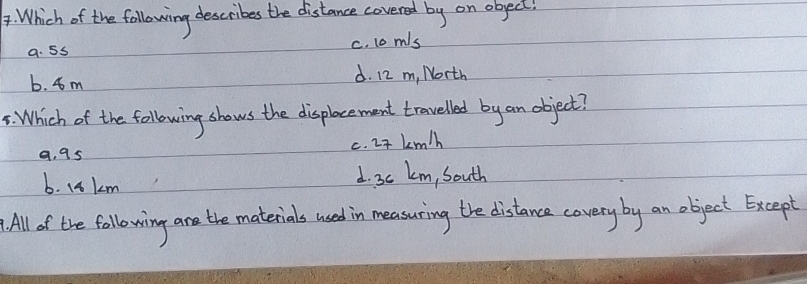 7. Which of the following describes the distance covered by on object?
a. 5s c. 10 m/s
b. 8 m d. 12 m, North
8. Which of the following shows the displacement travelled by an object?
a. 9s c. 27 km/h
b. 18 km d. 36 km, South
9. All of the following are the materials used in measuring the distance covery by an object Except